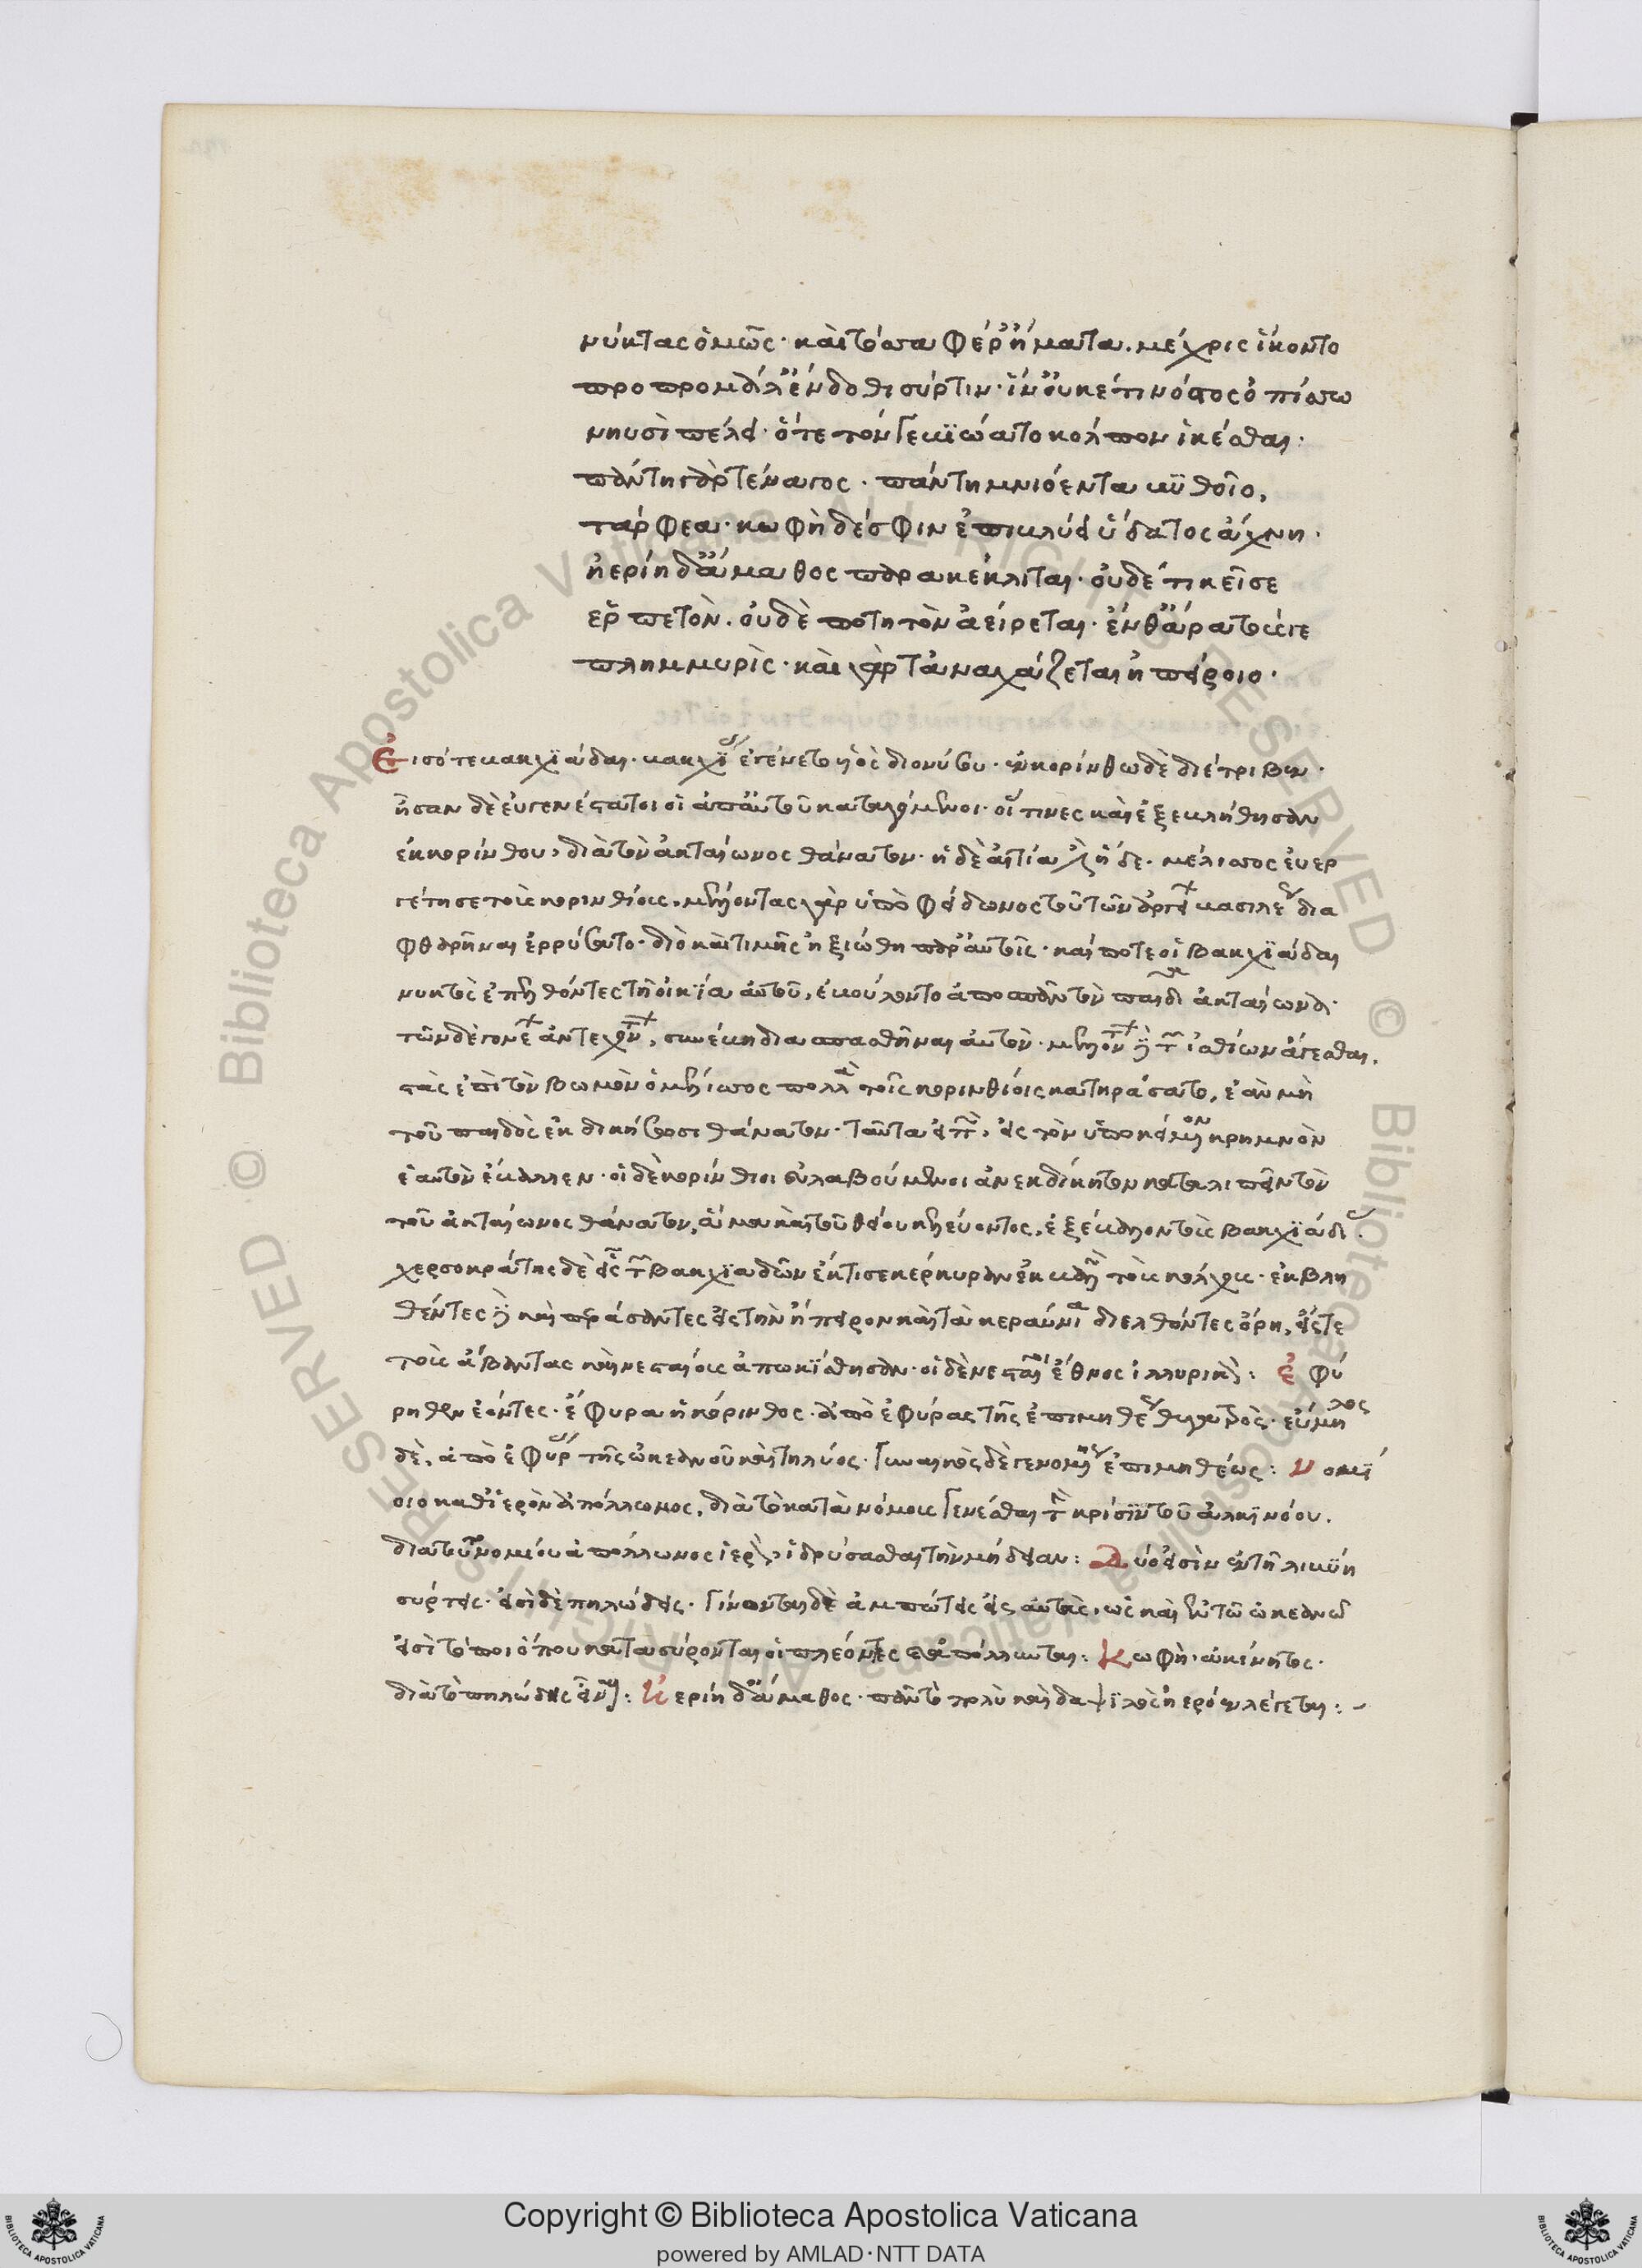 νύκτας ὁμῶς· καὶ τόσσα φέρ' ἤματα. μέχρις ἵκοντο
προπρομάλ' ἔνδοθι σύρτιν· ἵν' οὐκέτι νόστος ὀπίσσω
νηυσὶ πέλει· ὅτε τόνγε βιῴατο κολπον ἱκέσθαι·
πάντη γὰρ τέναγος· πάντη μνιόεντα βυθοῖο,
τάρφεα· κωφὴ δέ σφιν ἐπιβλύει ὕδατος ἄχνη·
ἠερίη δ' ἄμαθος παρακέκλιται· οὐδέ τι κεῖσε
ἑρπετὸν. οὐδὲ ποτητὸν ἀείρεται· ἔνθ' ἄρα τούς γε
πλημμυρὶς· καὶ γὰρ τ' ἀναχάζεται ἠπείροιο·
Εἰσότε βακχϊάδαι· βακχϊ ἐγένετο υἱὸς διονύσου· ἐν κορίνθω δὲ διέτριβεν·
ἦσαν δὲ εὐγενέστατοι οἱ ἀπ' αὐτοῦ καταγόμενοι· οἵ τινες καὶ ἐξεβλήθησαν
ἐκ κορίνθου, διὰ τὸν ἀκταίωνος θάνατον· ἡ δὲ αἰτία ἦν ἥδε. μέλισσος εὐερ
γέτησε τοὺς κορινθίους. μέλλοντας γὰρ ὑπὸ φείδωνος τοῦ τῶν ἀργείων βασιλέως δια
φθαρῆναι ἐρρύσατο· διὸ καὶ τιμῆς ἠξιώθη παρ' αὐτοῖς· καί ποτε οἱ βακχϊάδαι
νυκτὸς ἐπελθόντες τῆ οἰκία αὐτοῦ, ἐβούλοντο ἀποσπᾶν τὸν παῖδα ἀκταίωνα·
τῶν δὲ γονέων ἀντεχομένων, συνέβη διασπασθῆναι αὐτὸν· μελλόντων δὲ τῶν ἰσθμίων ἄγεσθαι,
στὰς ἐπὶ τὸν βωμὸν ὁ μέλισσος πολλὰ τοῖς κορινθίοις κατηράσατο, ἐὰν μὴ
τοῦ παιδὸς ἐκδικήσωσι θάνατον· ταῦτα εἰπὼν, εἰς τὸν ὑποκείμενον κρημνὸν
ἑαυτὸν ἔβαλλεν· οἱ δὲ κορίνθιοι εὐλαβούμενοι ἀνεκδίκητον καταλιπεῖν τὸν
τοῦ ἀκταίωνος θάνατον, ἅμα καὶ τοῦ θεοῦ κελεύοντος, ἐξέβαλον τοὺς βακχϊάδας·
χερσοκράτης δὲ εἷς τῶν βακχϊαδῶν ἔκτισε κέρκυραν ἐκβαλὼν τοὺς κόλχους· ἐκβλη
θέντες δὲ καὶ περάσαντες εἰς τὴν ἤπειρον καὶ τὰ κεραύνια διελθόντες ὄρη, εἴς τε
τοὺς ἄβαντας καὶ νεσταίους ἀπωκίσθησαν· οἱ δὲ νεσταῖοι ἔθνος ἰλλυρικὸν: ἐφύ
ρηθεν ἐόντες· ἔφυρα ἡ κόρινθος. ἀπὸ ἐφύρας τῆς ἐπιμηθέως θυγατρὸς· εὔμηλος
δὲ, ἀπὸ ἐφύρας τῆς ὠκεανοῦ καὶ τηθύος· γυναικὸς δὲ γενομένης ἐπιμηθέως: νομΐ
οιο καθ' ἱερὸν ἀπόλλωνος, διὰ τὸ κατὰ νόμους γενέσθαι τὴν κρίσϊν τοῦ ἀλκϊνόου.
διατοῦτο νομίου ἀπόλλωνος ἱερὸν ἱδρύσασθαι τὴν μήδειαν: Δύο εἰσὶν ἐν τῆ λιβύη
σύρτεις· εἰσὶ δὲ πηλώδεις· γίνονται δὲ ἀμπώτεις εἰς αὐτὰς, ὡς καὶ ἐν τῶ ὠκεανῶ
εἰσὶ τόποι ὅπου κατασύρονται οἱ πλέοντες καὶ ἀπόλλυνται: Κωφὴ· ἀκίνητος·
διὰ τὸ πηλώδης εἶναι: Ἠερίη δ' ἄμαθος· πᾶν τὸ πολὺ καὶ δαψϊλὲς ἠερόεν λέγεται: -
Copyright © Biblioteca Apostolica Vaticana
powered by AMLAD·NTT DATA